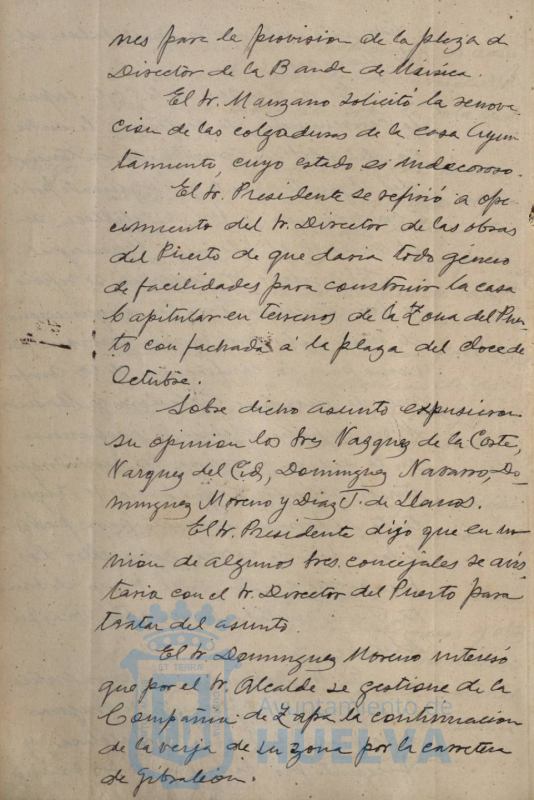 nes para la provision de la plaza d
Director de la Banda de Música.
El Sr. Manzano solicitó la renova-
cion de las colgaduras de la casa Ayun-
tamiento, cuyo estado es indecoroso.
El Sr. Presidente se refirió a ofre-
cimiento del Sr. Director de las obras
del Puerto de que daria todo género
de facilidades para construir la casa
Capitular en terrenos de la Zona del Puer-
to con fachada á la plaza del doce de
Octubre.
Sobre dicho asunto expusieron
su opinion los Sres Vazquez de la Corte,
Marquez del Cid, Dominguez Navarro, Do-
minguez Moreno y Diaz F. de Llanos.
El Sr. Presidente dijo que en u
nion de algunos Sres. concejales se avis
taria con el Sr. Director del Puerto para
tratar del asunto.
El Sr Dominguez Moreno interesó
que por el Sr. Alcalde se gestione de la
Compañia de Zafra la continuacion
de la verja de su zona por la carretera
de Gibraleon.
ET TERRÆ
Ayuntamiento de
HUELVA